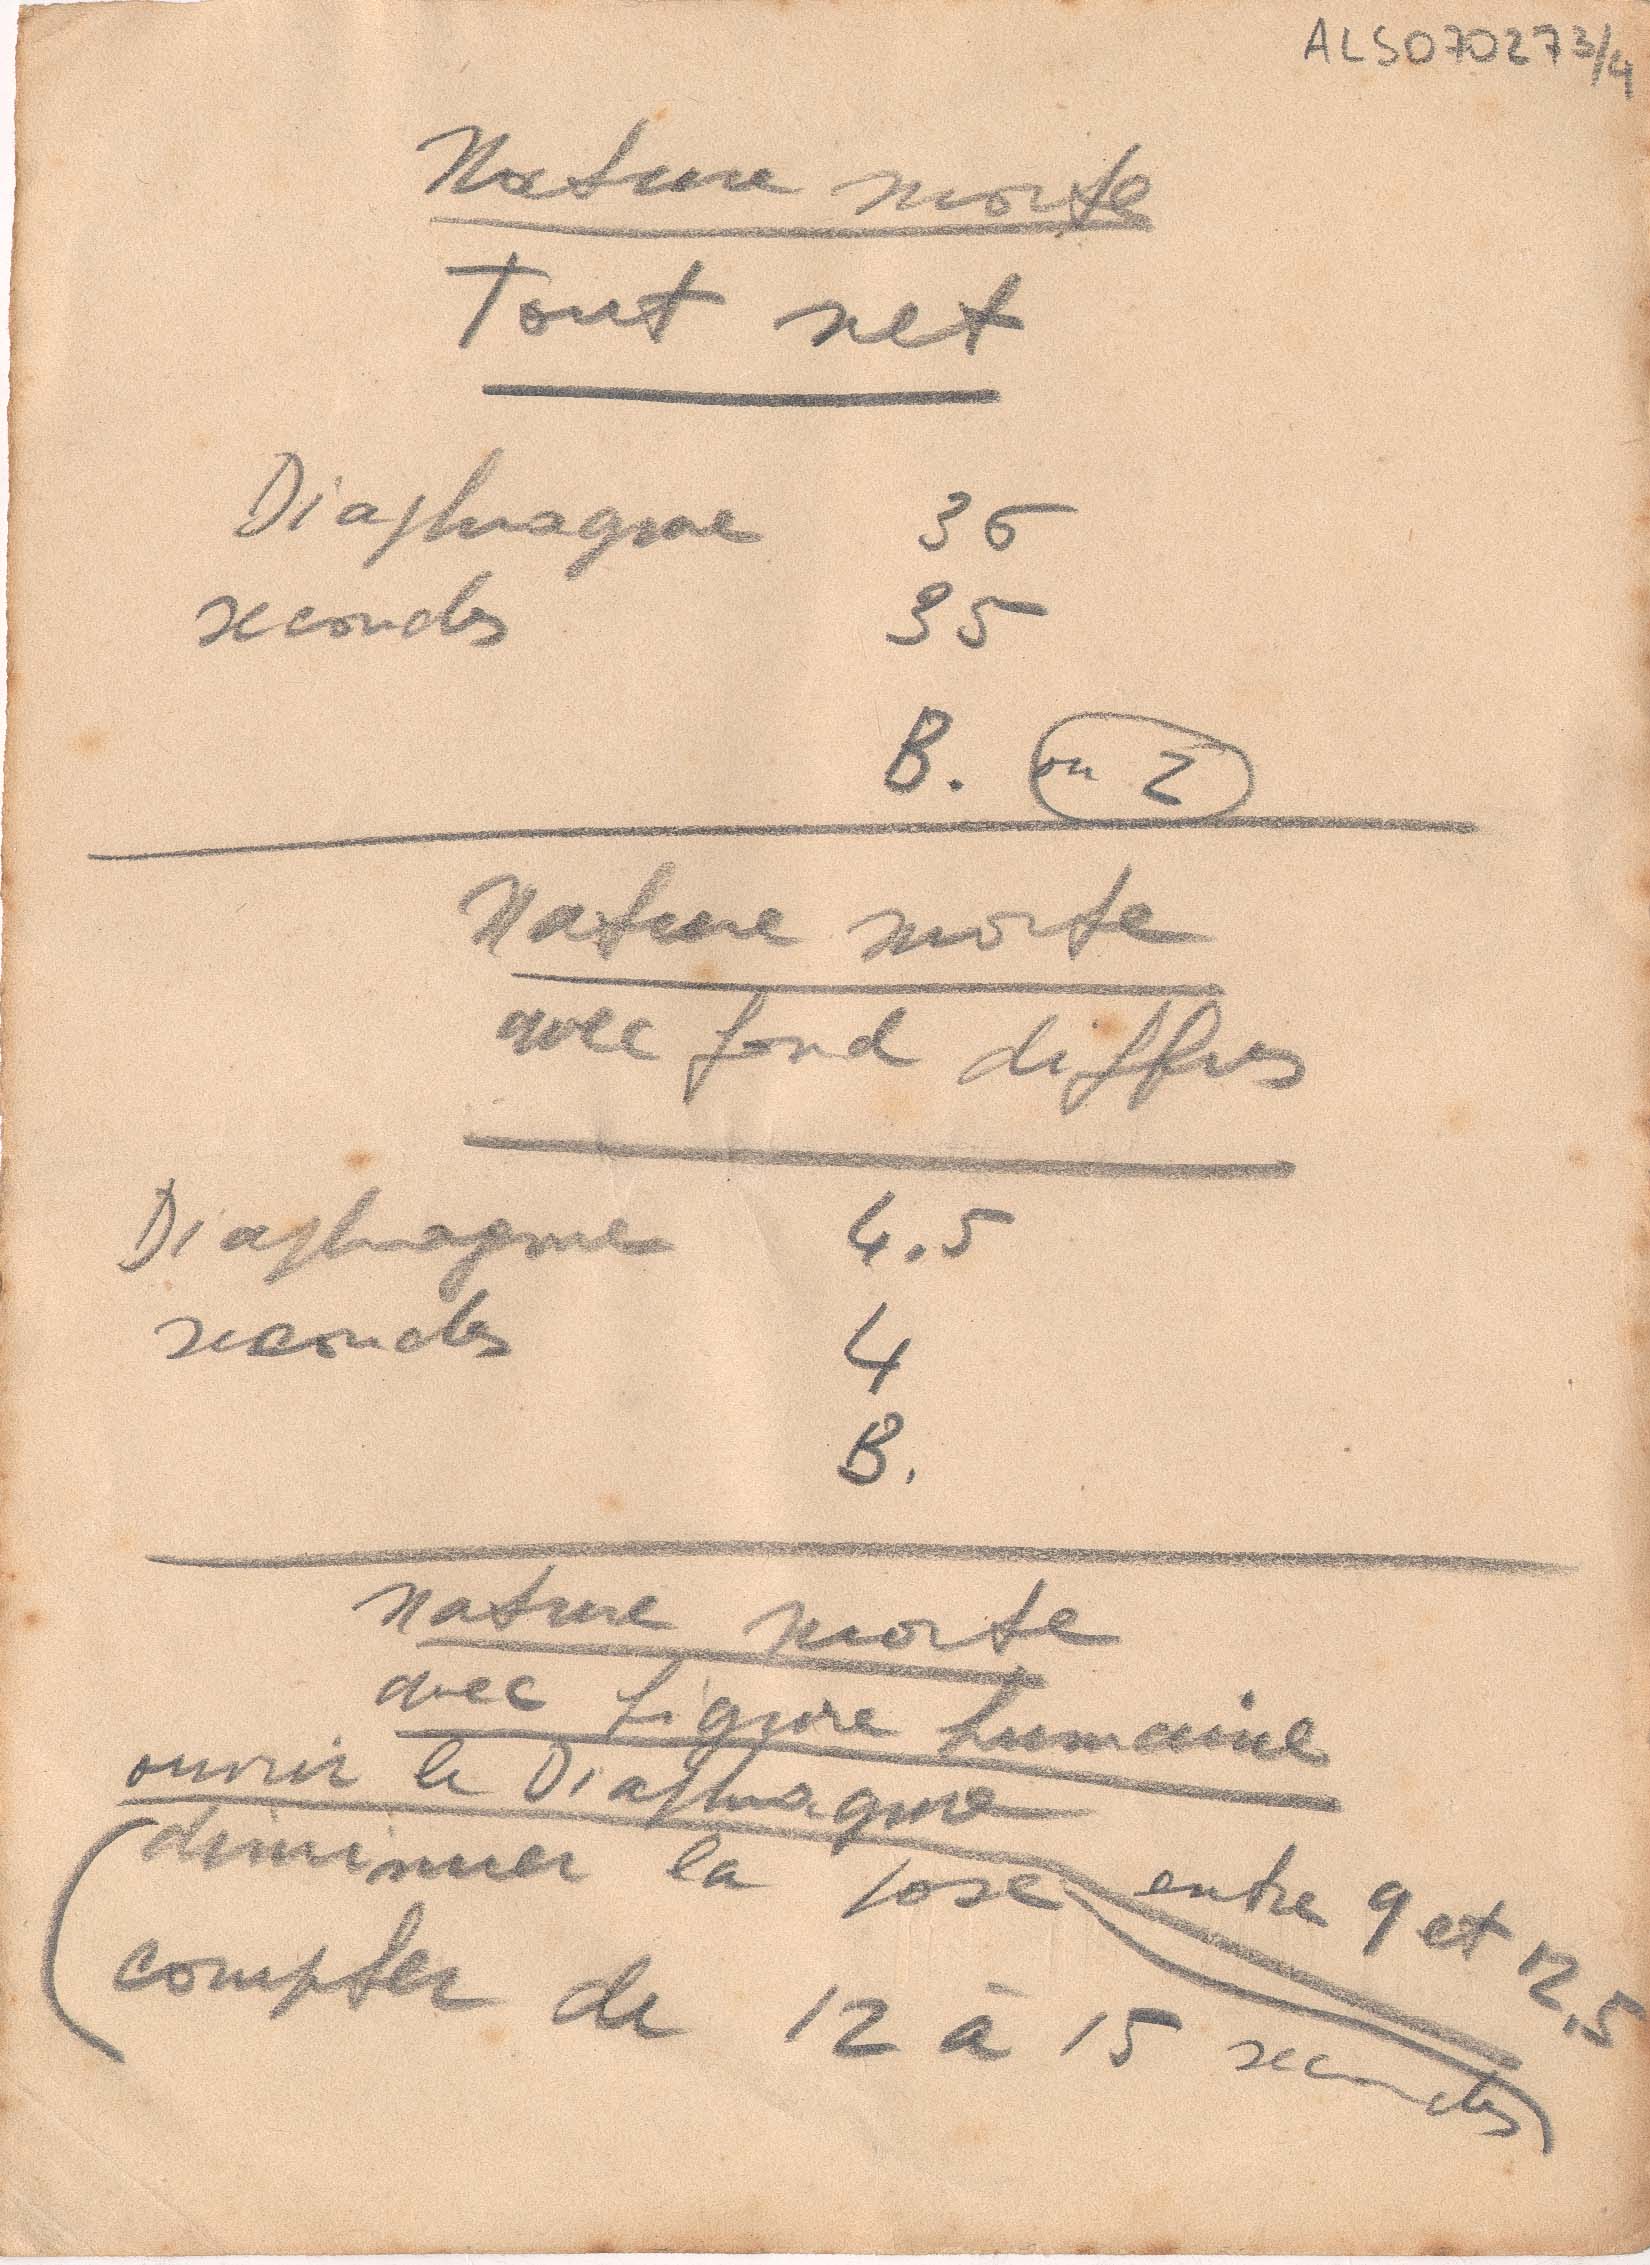 ALS070273/4
Nature morte
Tout net
Diaphragme 36
secondes 35
B. ou Z
Nature morte
avec fond diffus
Diaphragme 4.5
secondes 4
B.
nature morte
avec figure humaine
ouvrir le Diaphragme entre 9 et 12,5
(diminuer la pose
compter de 12 à 15 secondes)